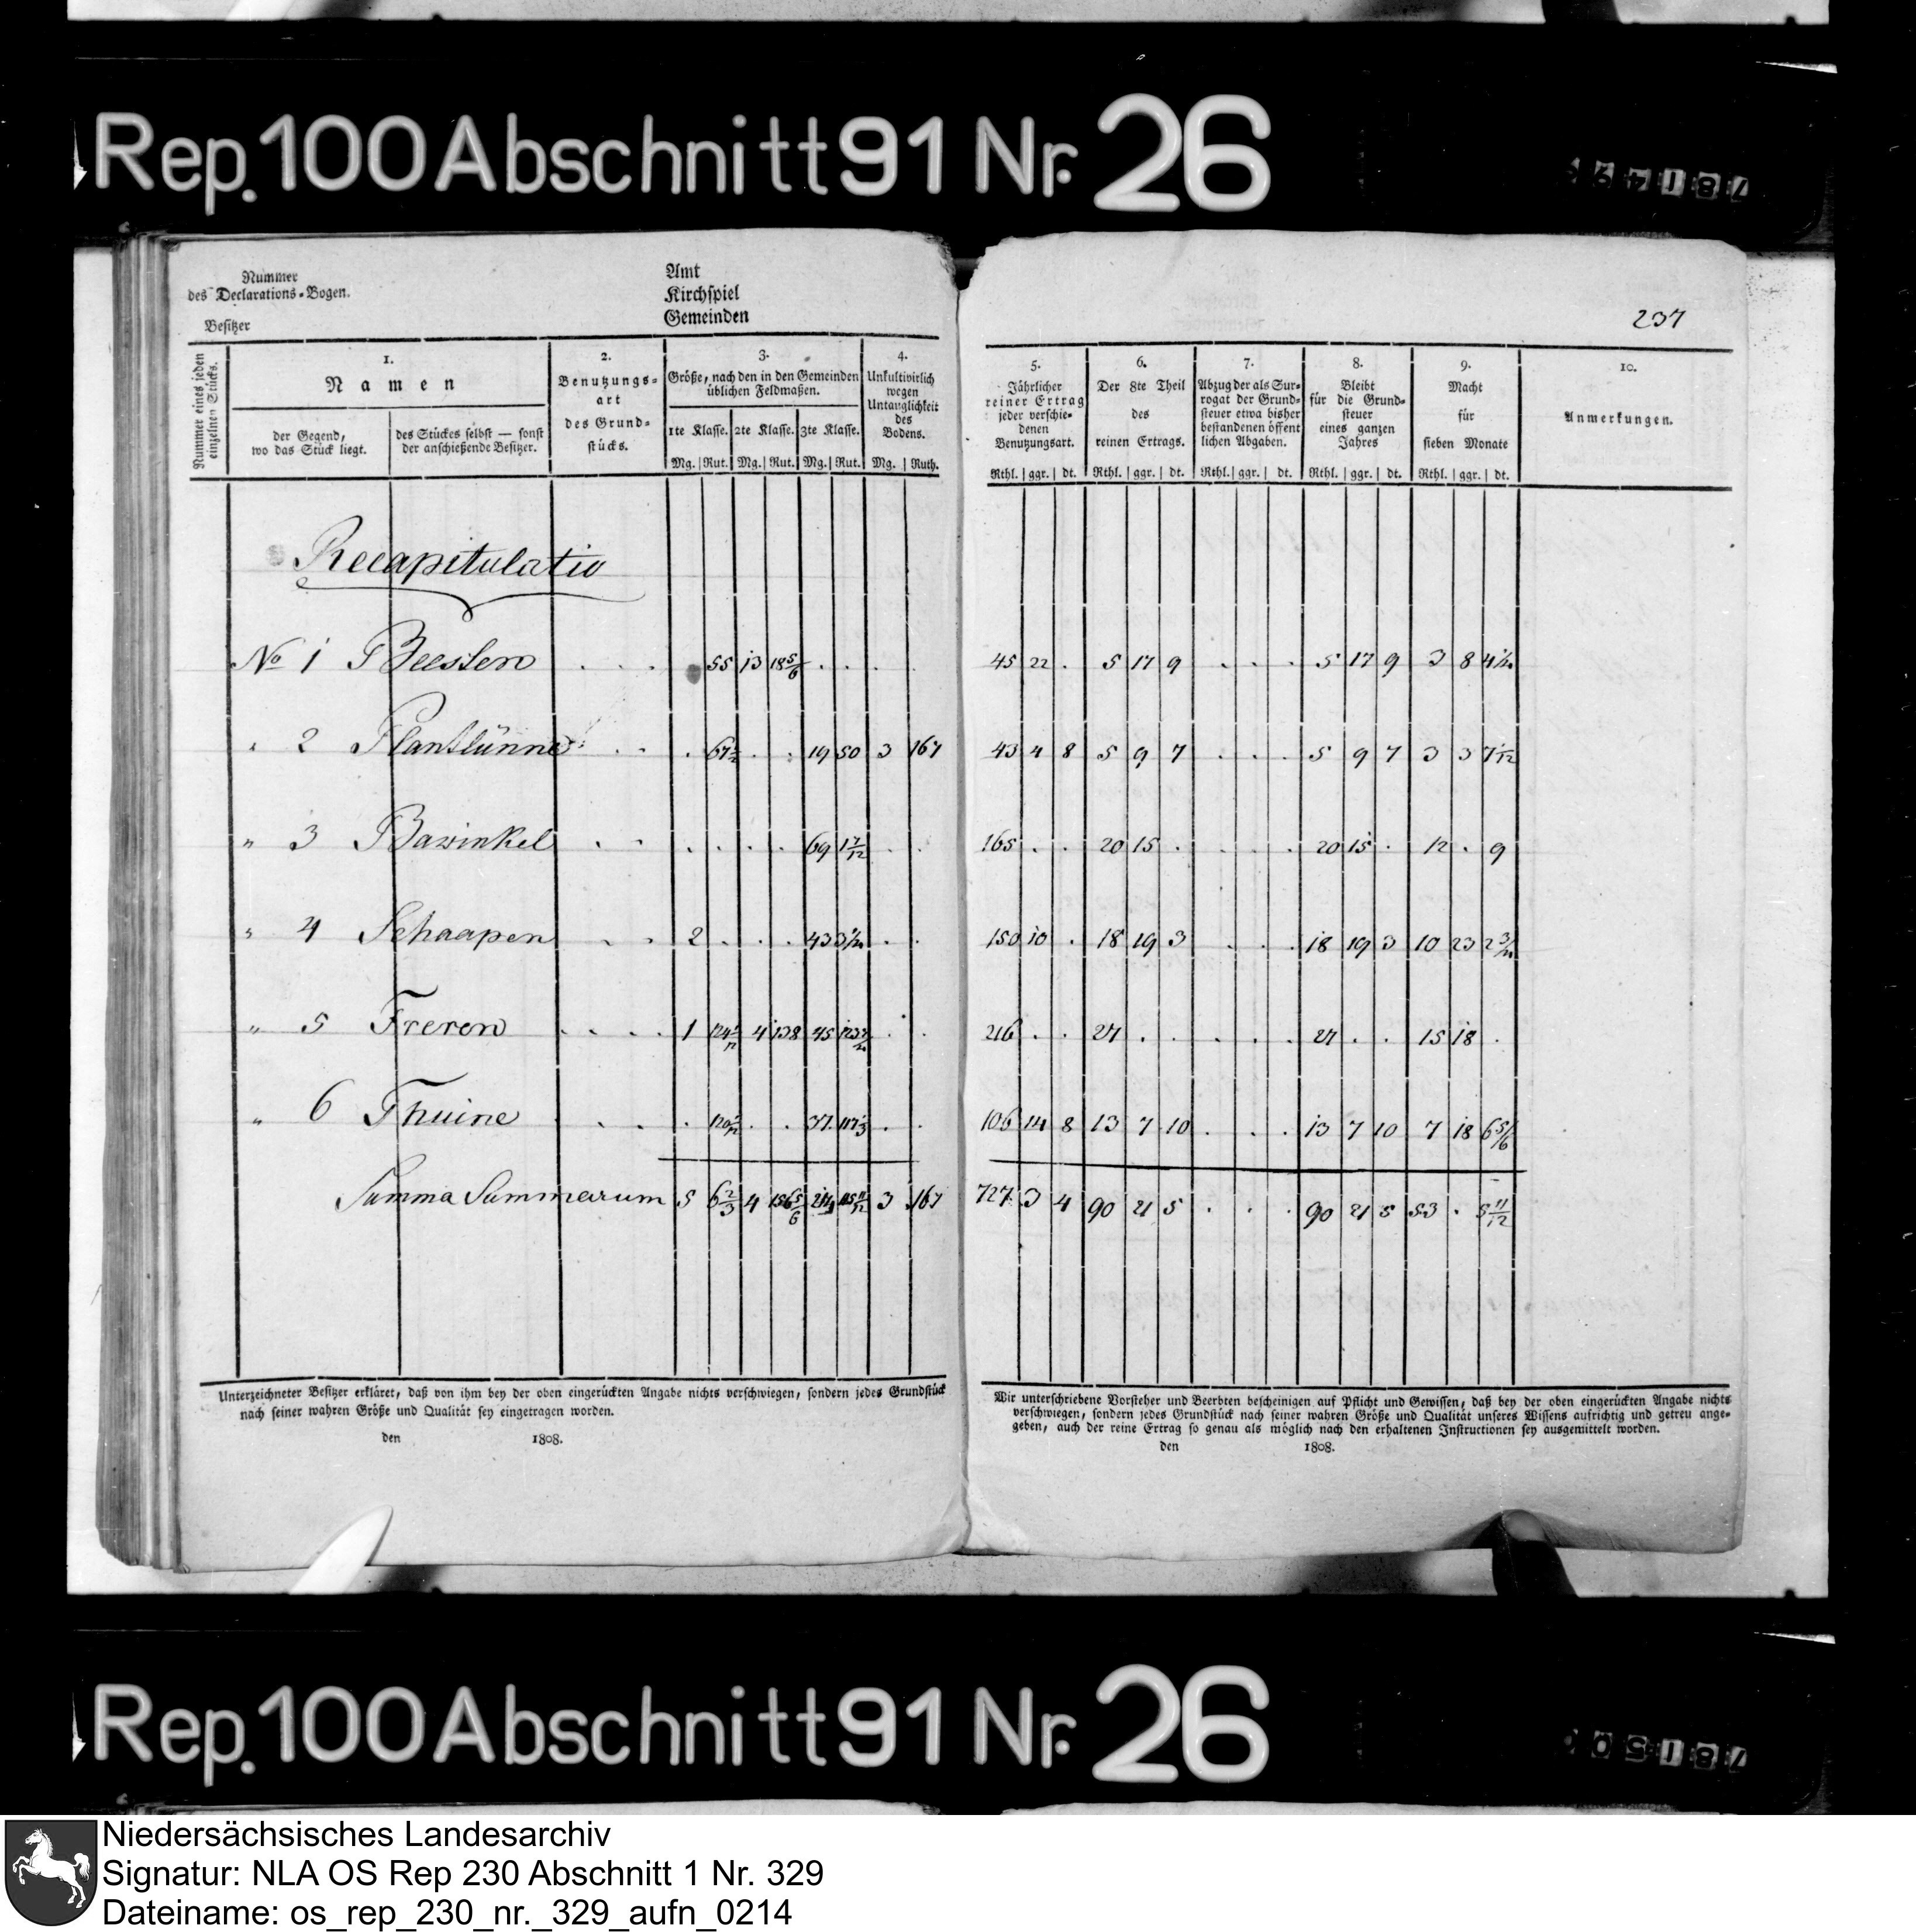 Rep. 100 Abschnitt 91 Nr. 26
Nummer
des Declarations-Bogen.
Besitzer
Amt
Kirchspiel
Gemeinden
237
Nummer eines jeden einzelnen Stücks.
1.
Namen
der Gegend, wo das Stück liegt.
des Stückes selbst — sonst der anschießende Besitzer.
2.
Benutzungs-art des Grund-stücks.
3.
Größe, nach den in den Gemeinden üblichen Feldmaßen.
1te Klasse. 2te Klasse. 3te Klasse.
Mg. Rut. Mg. Rut. Mg. Rut.
4.
Unkultivirlich wegen Untauglichkeit des Bodens.
Mg. Ruth.
5.
Jährlicher reiner Ertrag jeder verschie-denen Benutzungsart.
Rthl. ggr. dt.
6.
Der 8te Theil des reinen Ertrags.
Rthl. ggr. dt.
7.
Abzug der als Sur-rogat der Grund-steuer etwa bisher bestandenen öffent lichen Abgaben.
Rthl. ggr. dt.
8.
Bleibt für die Grund-steuer eines ganzen Jahres
Rthl. ggr. dt.
9.
Macht für sieben Monate
Rthl. ggr. dt.
10.
Anmerkungen.
Recapitulatio
No 1 Beesten . . . 55 13 18 5/6 . . . . 45 22 . 5 17 9 . . . 5 17 9 3 8 4 1/4
" 2 Plantlünne . . . . . . 19 50 3 167 43 4 8 5 9 7 . . . 5 9 7 3 3 7 1/12
" 3 Bawinkel . . . . . . 69 1 7/12 . . 165 . . 20 15 . . . . 20 15 . 12 . 9
" 4 Schaapen . . 2 . . . 43 . . 150 10 . 18 19 3 . . . 18 19 3 10 23 2
" 5 Freren . . . . 1 4 138 45 . . 216 . . 27 . . . . . 27 . . 15 18 .
" 6 Thuine . . . . . . 37 117 1/3 . . 106 14 8 13 7 10 . . . 13 7 10 7 18 6 5/6
Summa Summarum 5 6 2/3 4 156 5/6 3 167 727 3 4 90 21 5 . . . 90 21 5 53 . 5 11/12
Unterzeichneter Besitzer erkläret, daß von ihm bey der oben eingerückten Angabe nichts verschwiegen, sondern jedes Grundstück
nach seiner wahren Größe und Qualität sey eingetragen worden.
den 1808.
Wir unterschriebene Vorsteher und Beerbten bescheinigen auf Pflicht und Gewissen, daß bey der oben eingerückten Angabe nichts
verschwiegen, sondern jedes Grundstück nach seiner wahren Größe und Qualität unseres Wissens aufrichtig und getreu ange-
geben, auch der reine Ertrag so genau als möglich nach den erhaltenen Instructionen sey ausgemittelt worden.
den 1808.
Rep. 100 Abschnitt 91 Nr. 26
Niedersächsisches Landesarchiv
Signatur: NLA OS Rep 230 Abschnitt 1 Nr. 329
Dateiname: os_rep_230_nr._329_aufn_0214